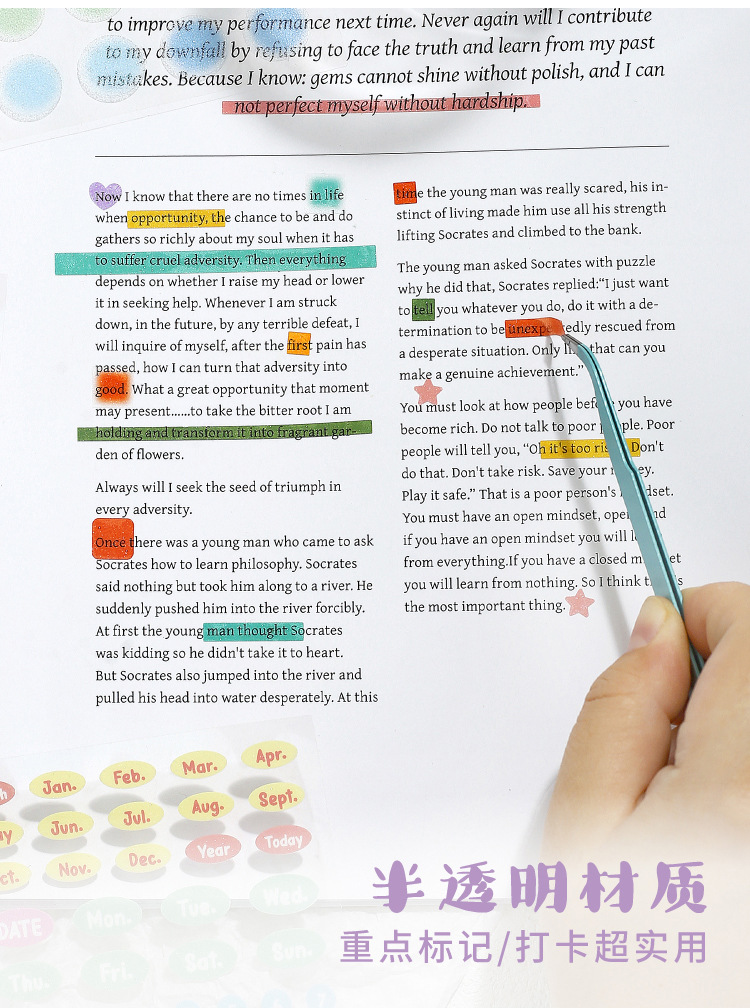 to improve my performance next time. Never again will I contribute
to my downfall by refusing to face the truth and learn from my past
mistakes. Because I know: gems cannot shine without polish, and I can
not perfect myself without hardship.
Now I know that there are no times in life
when opportunity, the chance to be and do
gathers so richly about my soul when it has
to suffer cruel adversity. Then everything
depends on whether I raise my head or lower
it in seeking help. Whenever I am struck
down, in the future, by any terrible defeat, I
will inquire of myself, after the first pain has
passed, how I can turn that adversity into
good. What a great opportunity that moment
may present......to take the bitter root I am
holding and transform it into fragrant gar-
den of flowers.
Always will I seek the seed of triumph in
every adversity.
Once there was a young man who came to ask
Socrates how to learn philosophy. Socrates
said nothing but took him along to a river. He
suddenly pushed him into the river forcibly.
At first the young man thought Socrates
was kidding so he didn't take it to heart.
But Socrates also jumped into the river and
pulled his head into water desperately. At this
time the young man was really scared, his in-
stinct of living made him use all his strength
lifting Socrates and climbed to the bank.
The young man asked Socrates with puzzle
why he did that, Socrates replied:“I just want
to tell you whatever you do, do it with a de-
termination to be unexpectedly rescued from
a desperate situation. Only that can you
make a genuine achievement.”
You must look at how people before you have
become rich. Do not talk to poor people. Poor
people will tell you, “Oh it's too risky. Don't
do that. Don't take risk. Save your money.
Play it safe.” That is a poor person's mindset.
You must have an open mindset, open and
if you have an open mindset you will
from everything.If you have a closed mindset
you will learn from nothing. So I think
the most important thing.
Jan. Feb. Mar. Apr.
Jun. Jul. Aug. Sept.
Nov. Dec. Year Today
DATE Mon. Tue. Wed.
Thu. Fri. Sat. Sun.
半透明材质
重点标记/打卡超实用